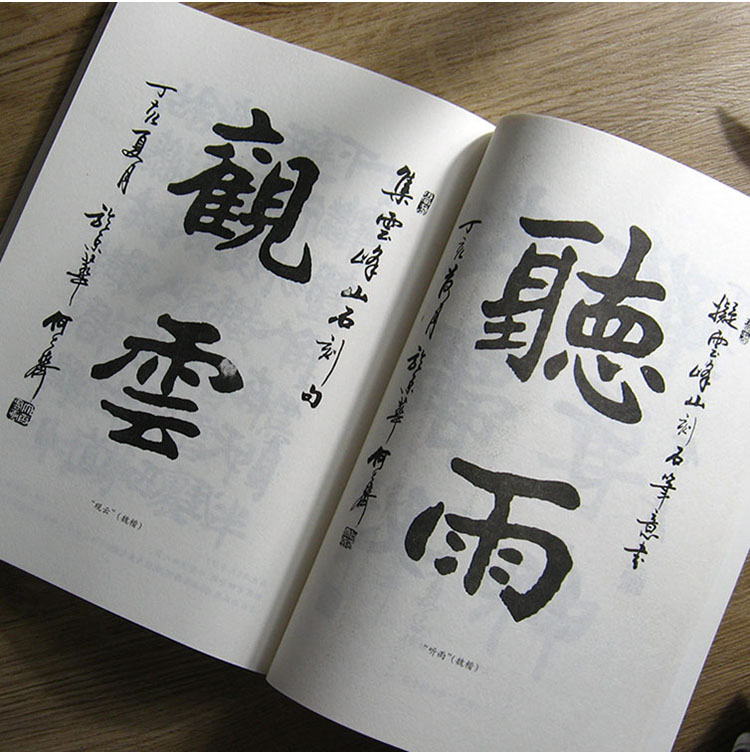 集雲峰山石刻句
觀雲
丁亥夏月於京華何
“观云”(魏楷)
擬雲峰山刻石筆意書
聽雨
丁亥荷月於京華何
“听雨”(魏楷)